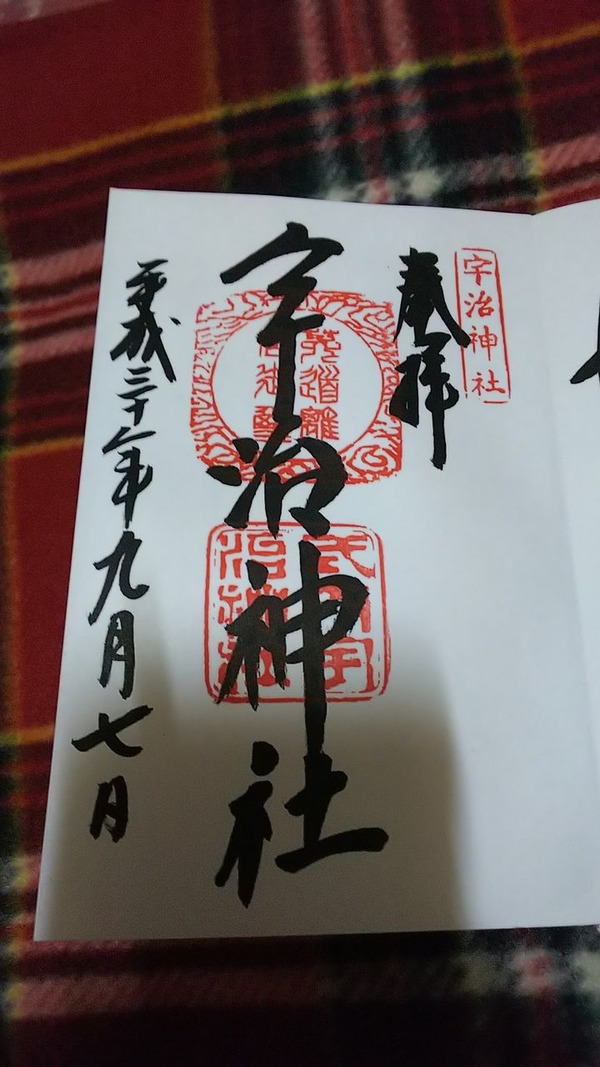 宇治神社
奉拝
宇治神社
平成三十年九月七日
菟道離